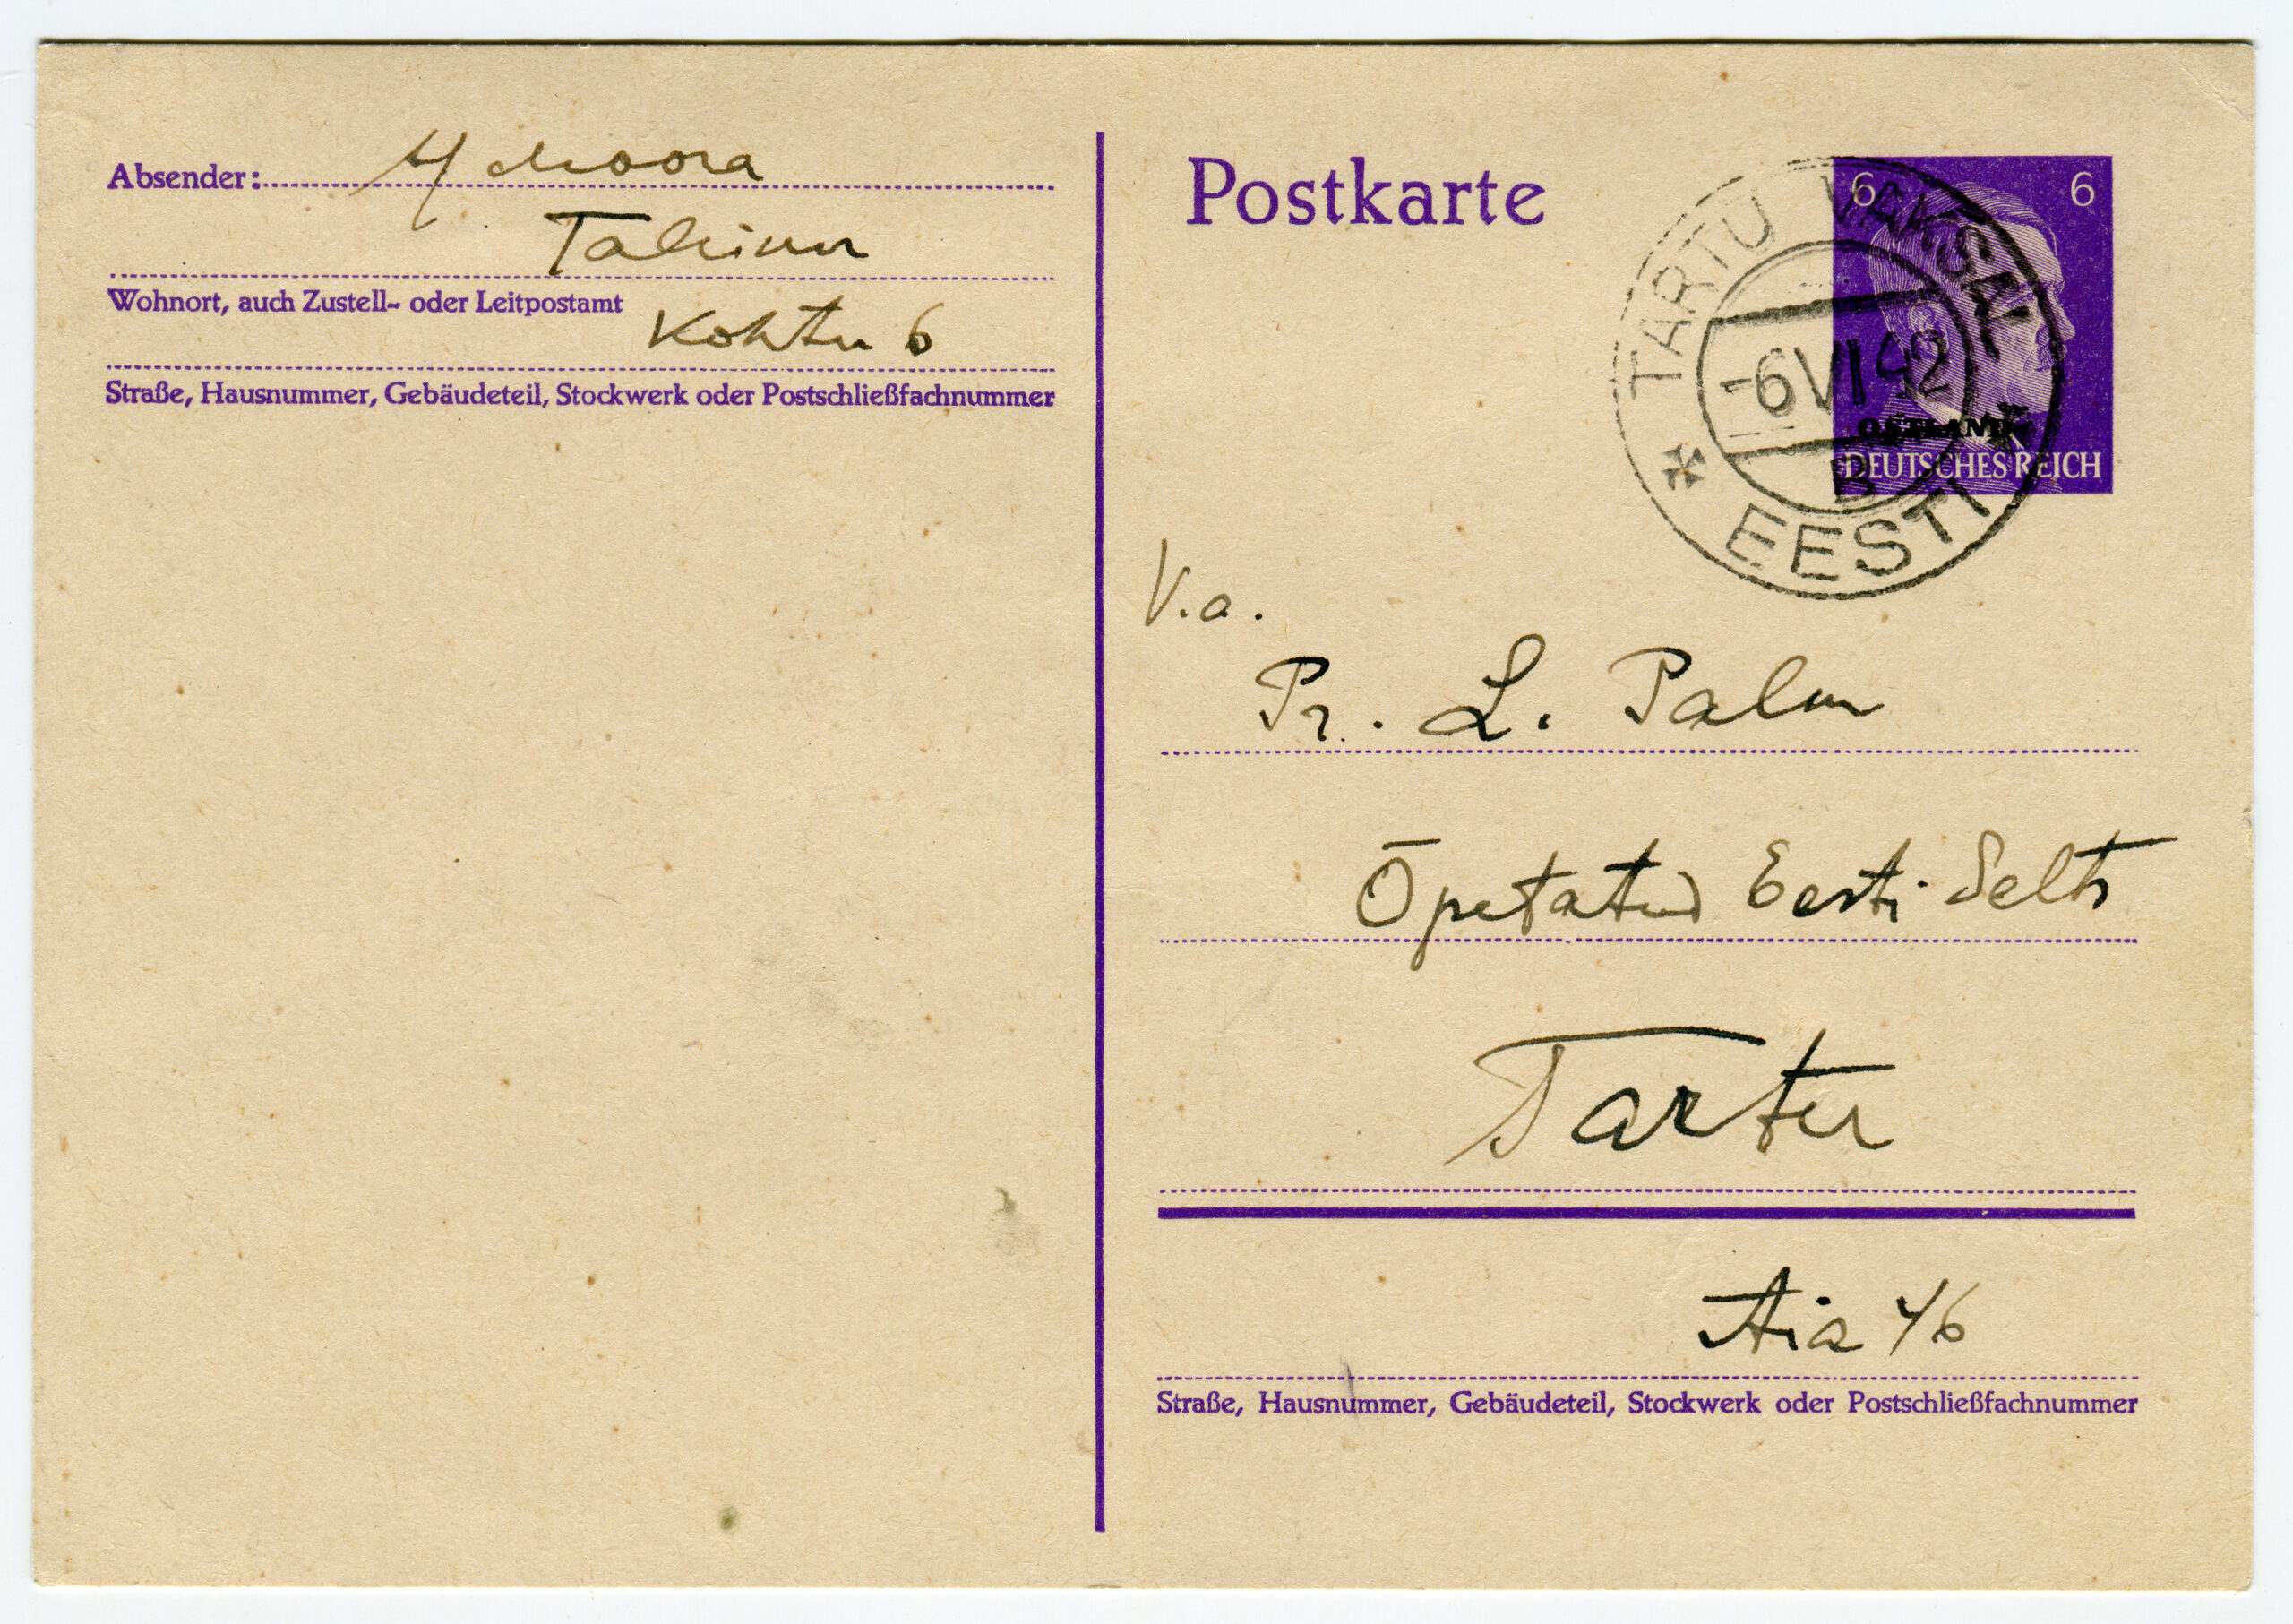 Absender: H Moora
Tallinn
Wohnort, auch Zustell- oder Leitpostamt
Kohtu 6
Straße, Hausnummer, Gebäudeteil, Stockwerk oder Postschließfachnummer
Postkarte
6 6
TARTU VAKSAL
-6 VI 42
OSTLAND
DEUTSCHES REICH
B
EESTI
V.a.
Pr. L. Palm
Õpetatud Eesti Selts
Tartu
Aia 46
Straße, Hausnummer, Gebäudeteil, Stockwerk oder Postschließfachnummer